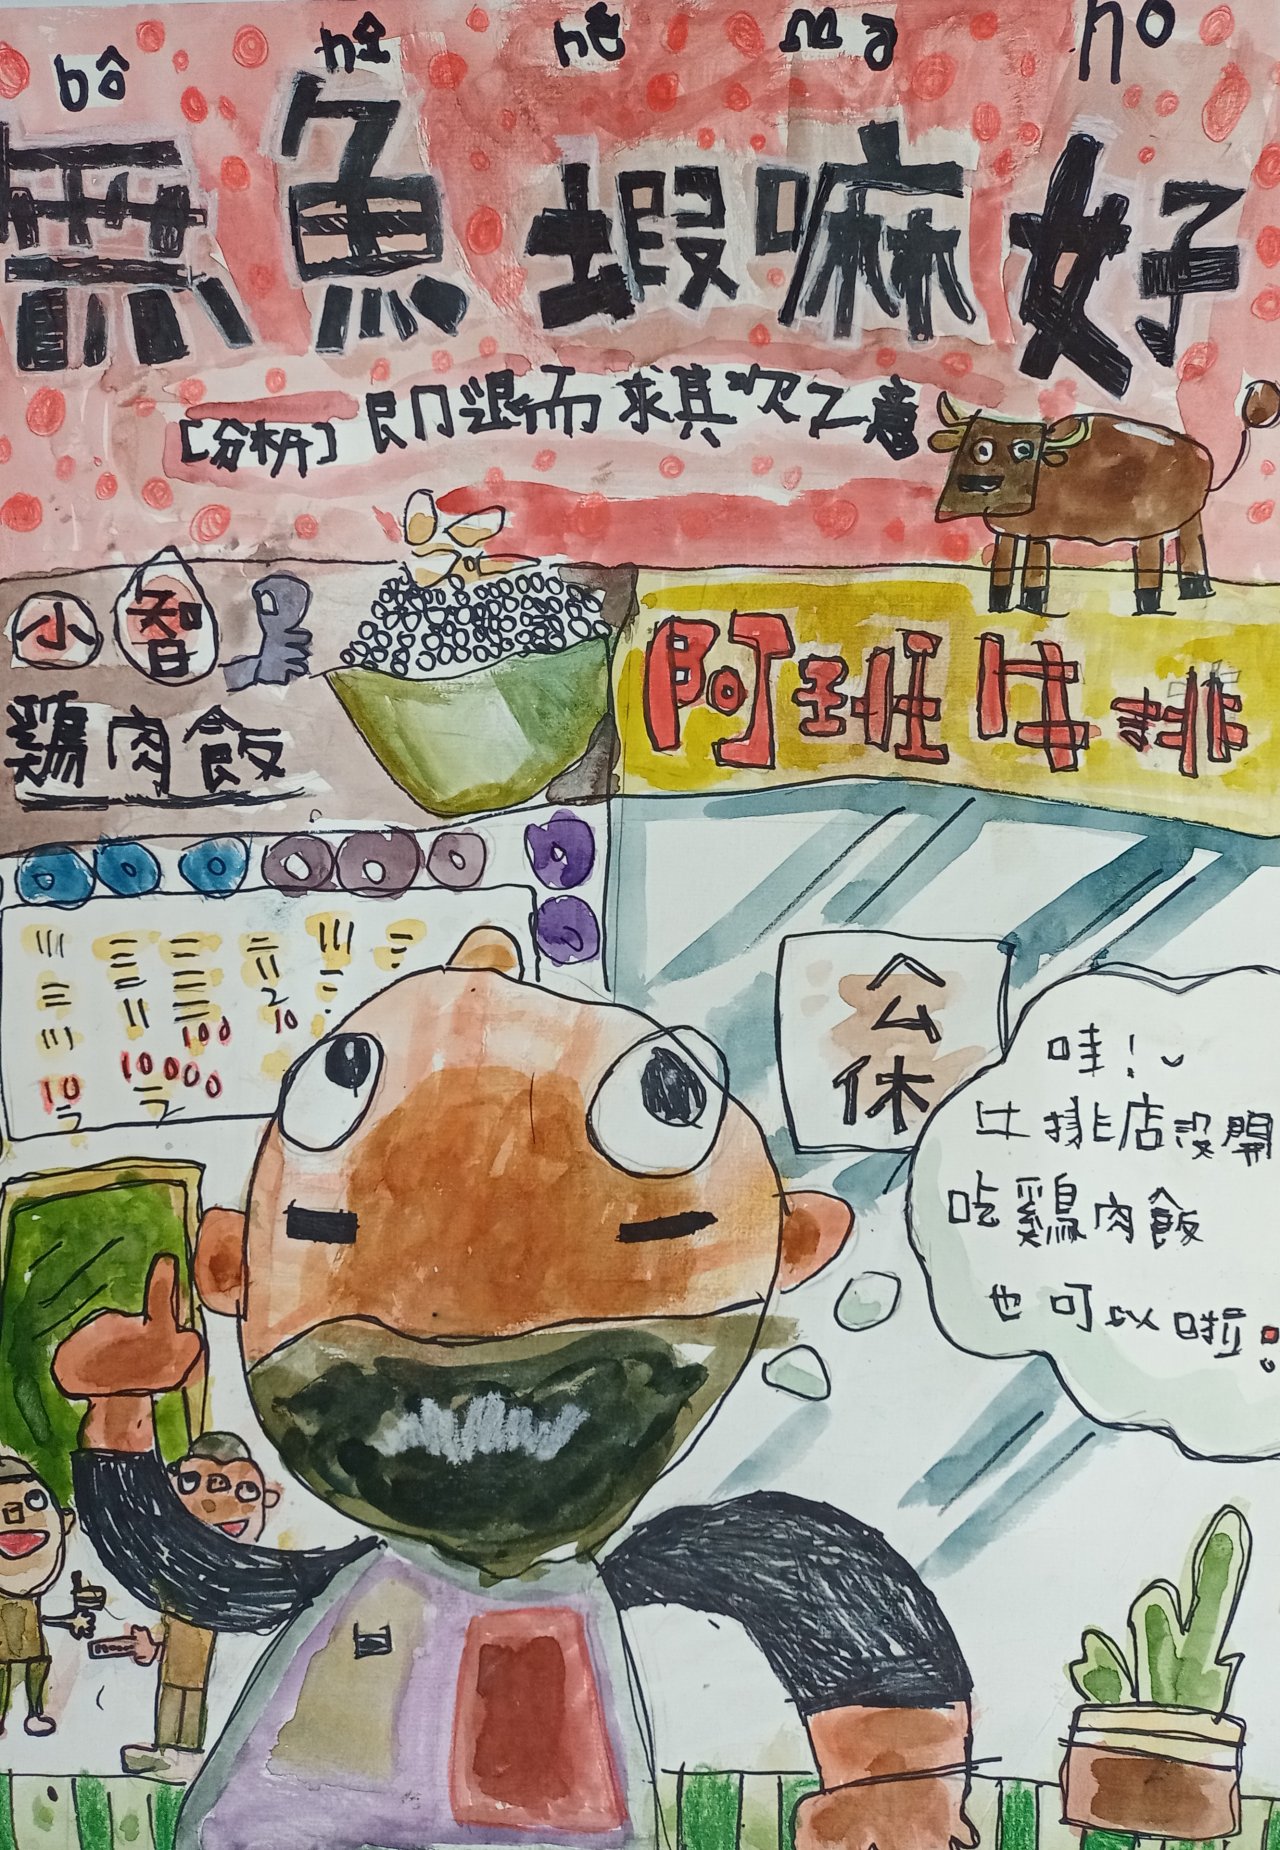 bô hî hê Ma ho
無魚蝦嘛好
[分析]即退而求其次之意
小智
鷄肉飯
阿班牛排
100
10
10000
10
公休
哇!~
牛排店沒開
吃鷄肉飯
也可以啦!